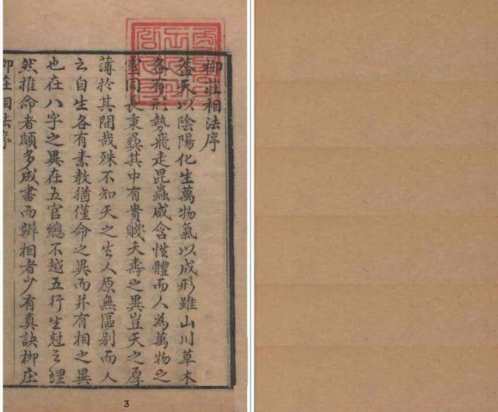 柳莊相法序
蓋天以陰陽化生萬物氣以成形雖山川草木
各有形勢飛走昆蟲咸含性體而人為萬物之
靈同夫秉彝其中有貴賤夭壽之異豈天之厚
薄於其間哉殊不知天之生人原無區別而人
之自生各有素教猶僅命之異而并有相之異
也在八字之異在五官總不越五行生尅之理
然推命者頗多成書而辨相者少有真訣柳庄
柳莊相法序
3